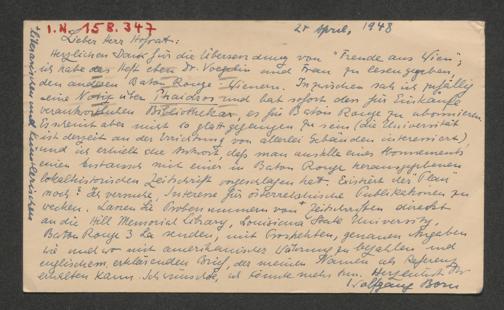 I.N. 158.347
25 April, 1948
Lieber Herr Hofrat:
Herzlichen Dank für die Übersendung von "Freude aus Wien";
ich habe das Heft eben Dr. Voegelin und Frau zu lesen gegeben,
den anderen Baton Rouge Wienern. Inzwischen sah ich zufällig
eine Notiz über Phaidros und bat sofort den für Einkäufe
verantwortlichen Bibliothekar, es für Baton Rouge zu abonnieren.
Es wird aber nicht so glatt gegangen zu sein (die Universität
ist derzeit an der Errichtung von allerlei Gebäuden interessiert)
und ich erhielt die Antwort, daß man anstelle eines Abonnements
einen Austausch mit einer in Baton Rouge herausgegebenen
lokalhistorischen Zeitschrift vorgeschlagen hat. Existiert der Plan
noch? Ihr Interesse für österreichische Publikationen zu
wecken. Lassen Sie Probenummern von Zeitschriften direkt
an die Hill Memorial Library, Louisiana State University,
Baton Rouge 3 La senden, mit Prospekten, genauen Angaben
wie und wo mit amerikanischer Währung zu bezahlen und
englischem, erklärenden Brief, der meinen Namen als Referenz
enthalten kann. Ich wünschte, ich könnte mehr tun. Herzlichst Ihr
Wolfgang Born
*literarischen und künstlerischen